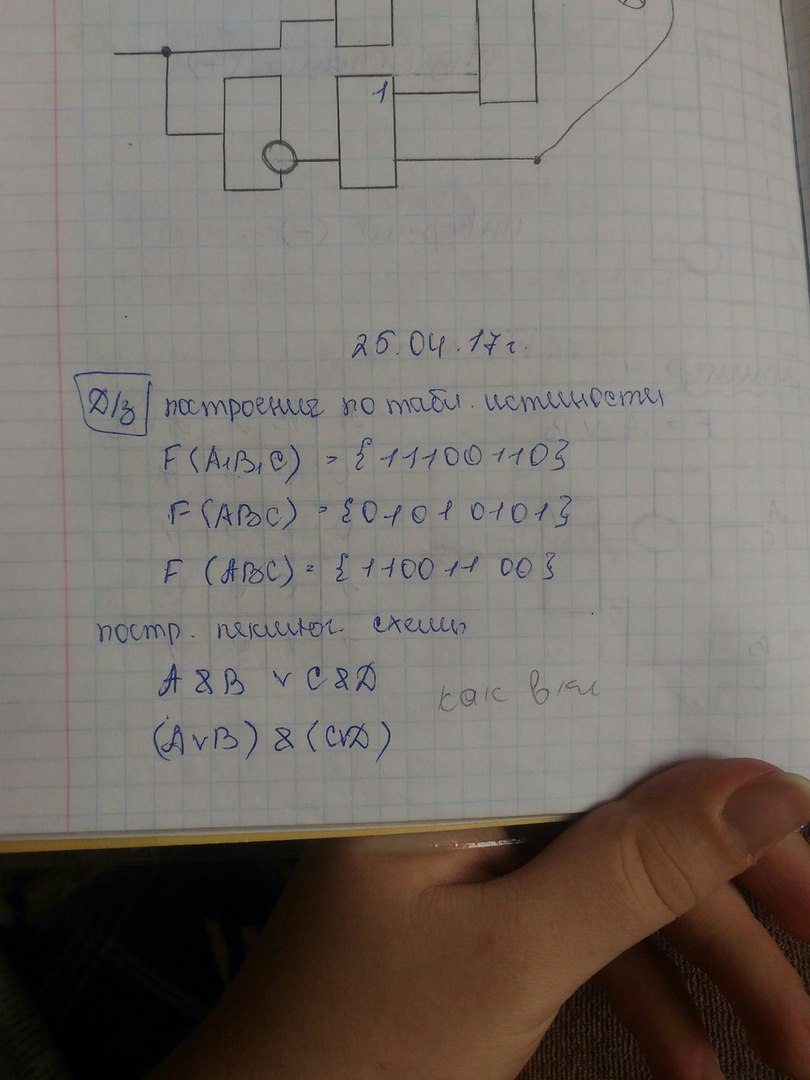 1
25.04.17г.
Д/з построение по табл. истинности
F(A,B,C) = {11100110}
F(ABC) = {01010101}
F (ABC) = {110011 00}
постр. схемы
A & B v C & D
как вкл
(A v B) & (CvD)